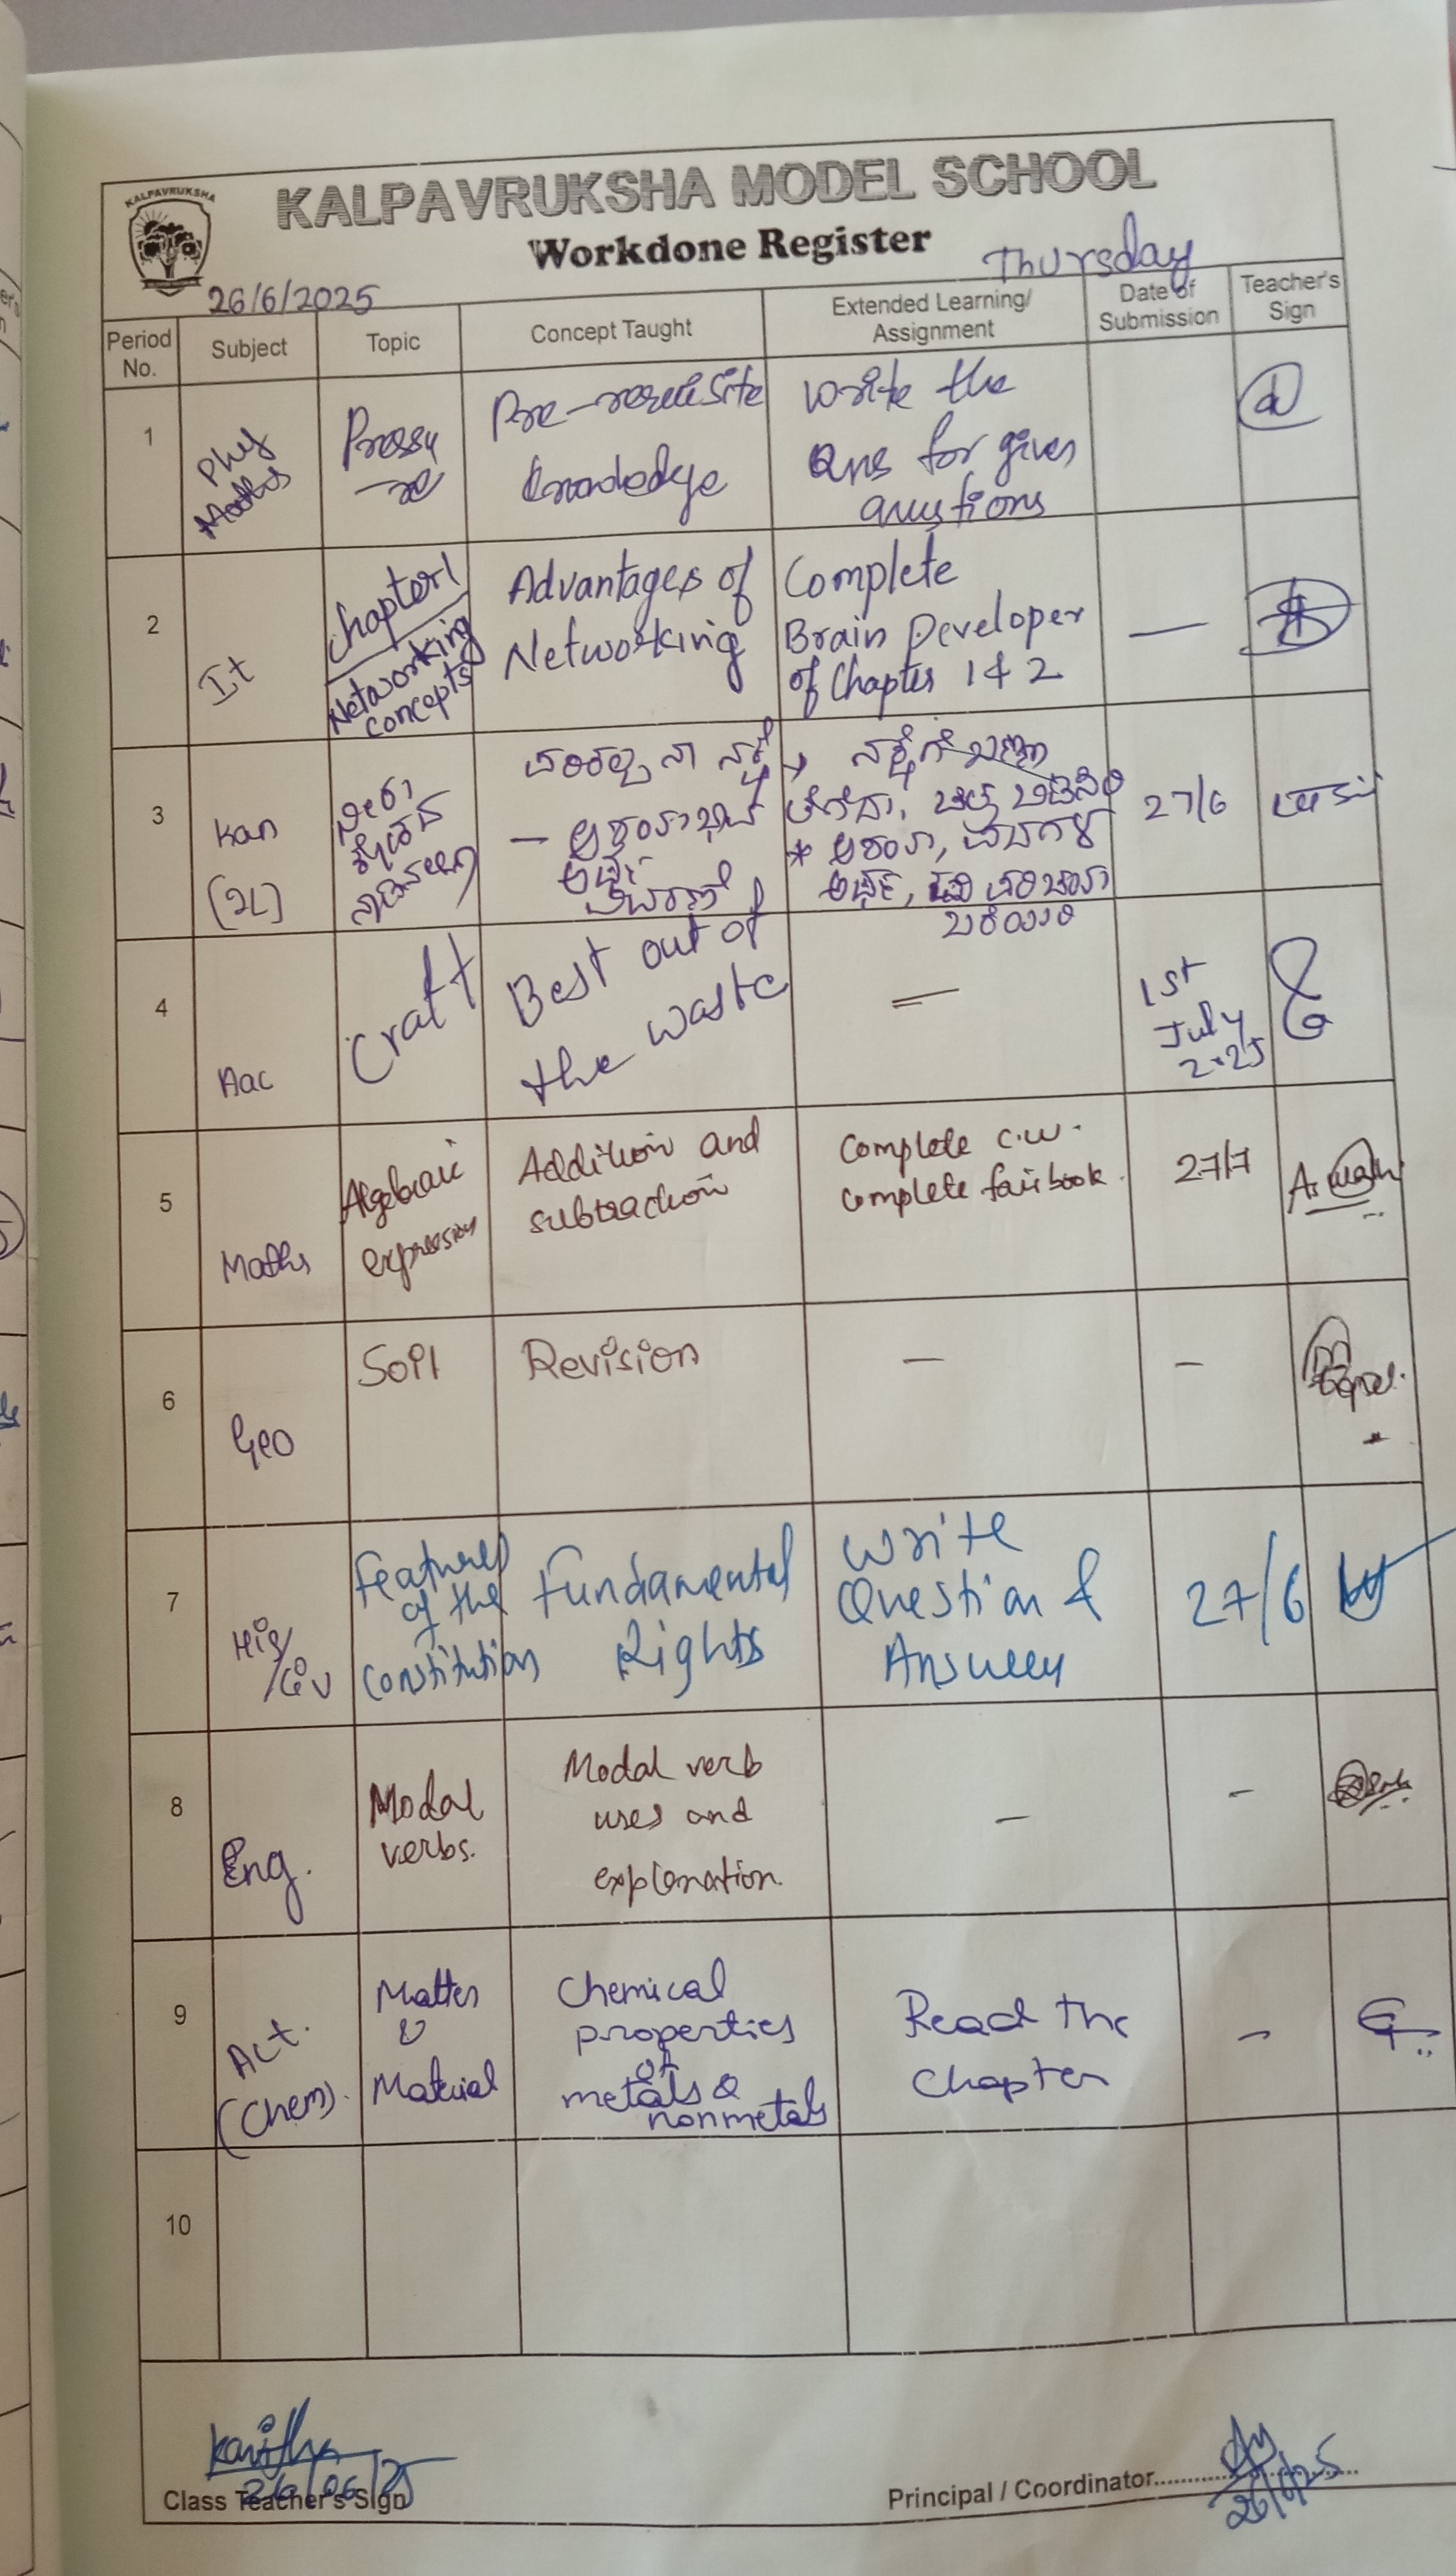 KALPAVRUKSHA
KALPAVRUKSHA MODEL SCHOOL
Workdone Register
Thursday
26/6/2025
Period No.
Subject
Topic
Concept Taught
Extended Learning/ Assignment
Date of Submission
Teacher's Sign
1
Phy
Maths
Pressu
re
Pre-requisite
knowledge
write the
Qns for given
questions
2
It
Chapter 1
Networking
concepts
Advantages of
Networking
Complete
Brain Developer
of Chapter 1 & 2
3
Kan
(2L)
27/6
4
Aac
Craft
Best out of
the waste
1st
July
2025
5
Maths
Algebraic
expression
Addition and
subtraction
Complete c.w.
complete fairbook.
27/7
6
Geo
Soil
Revision
7
His/
/Civ
Features
of the
Constitution
Fundamental
Rights
Write
Question &
Answer
27/6
8
Eng.
Modal
verbs.
Modal verb
uses and
explanation.
9
Act.
(Chem).
Matter
&
Material
Chemical
properties
of
metals &
nonmetals
Read the
chapter
10
Kavitha
26/06/25
Class Teacher's Sign
Principal / Coordinator
26/6/25